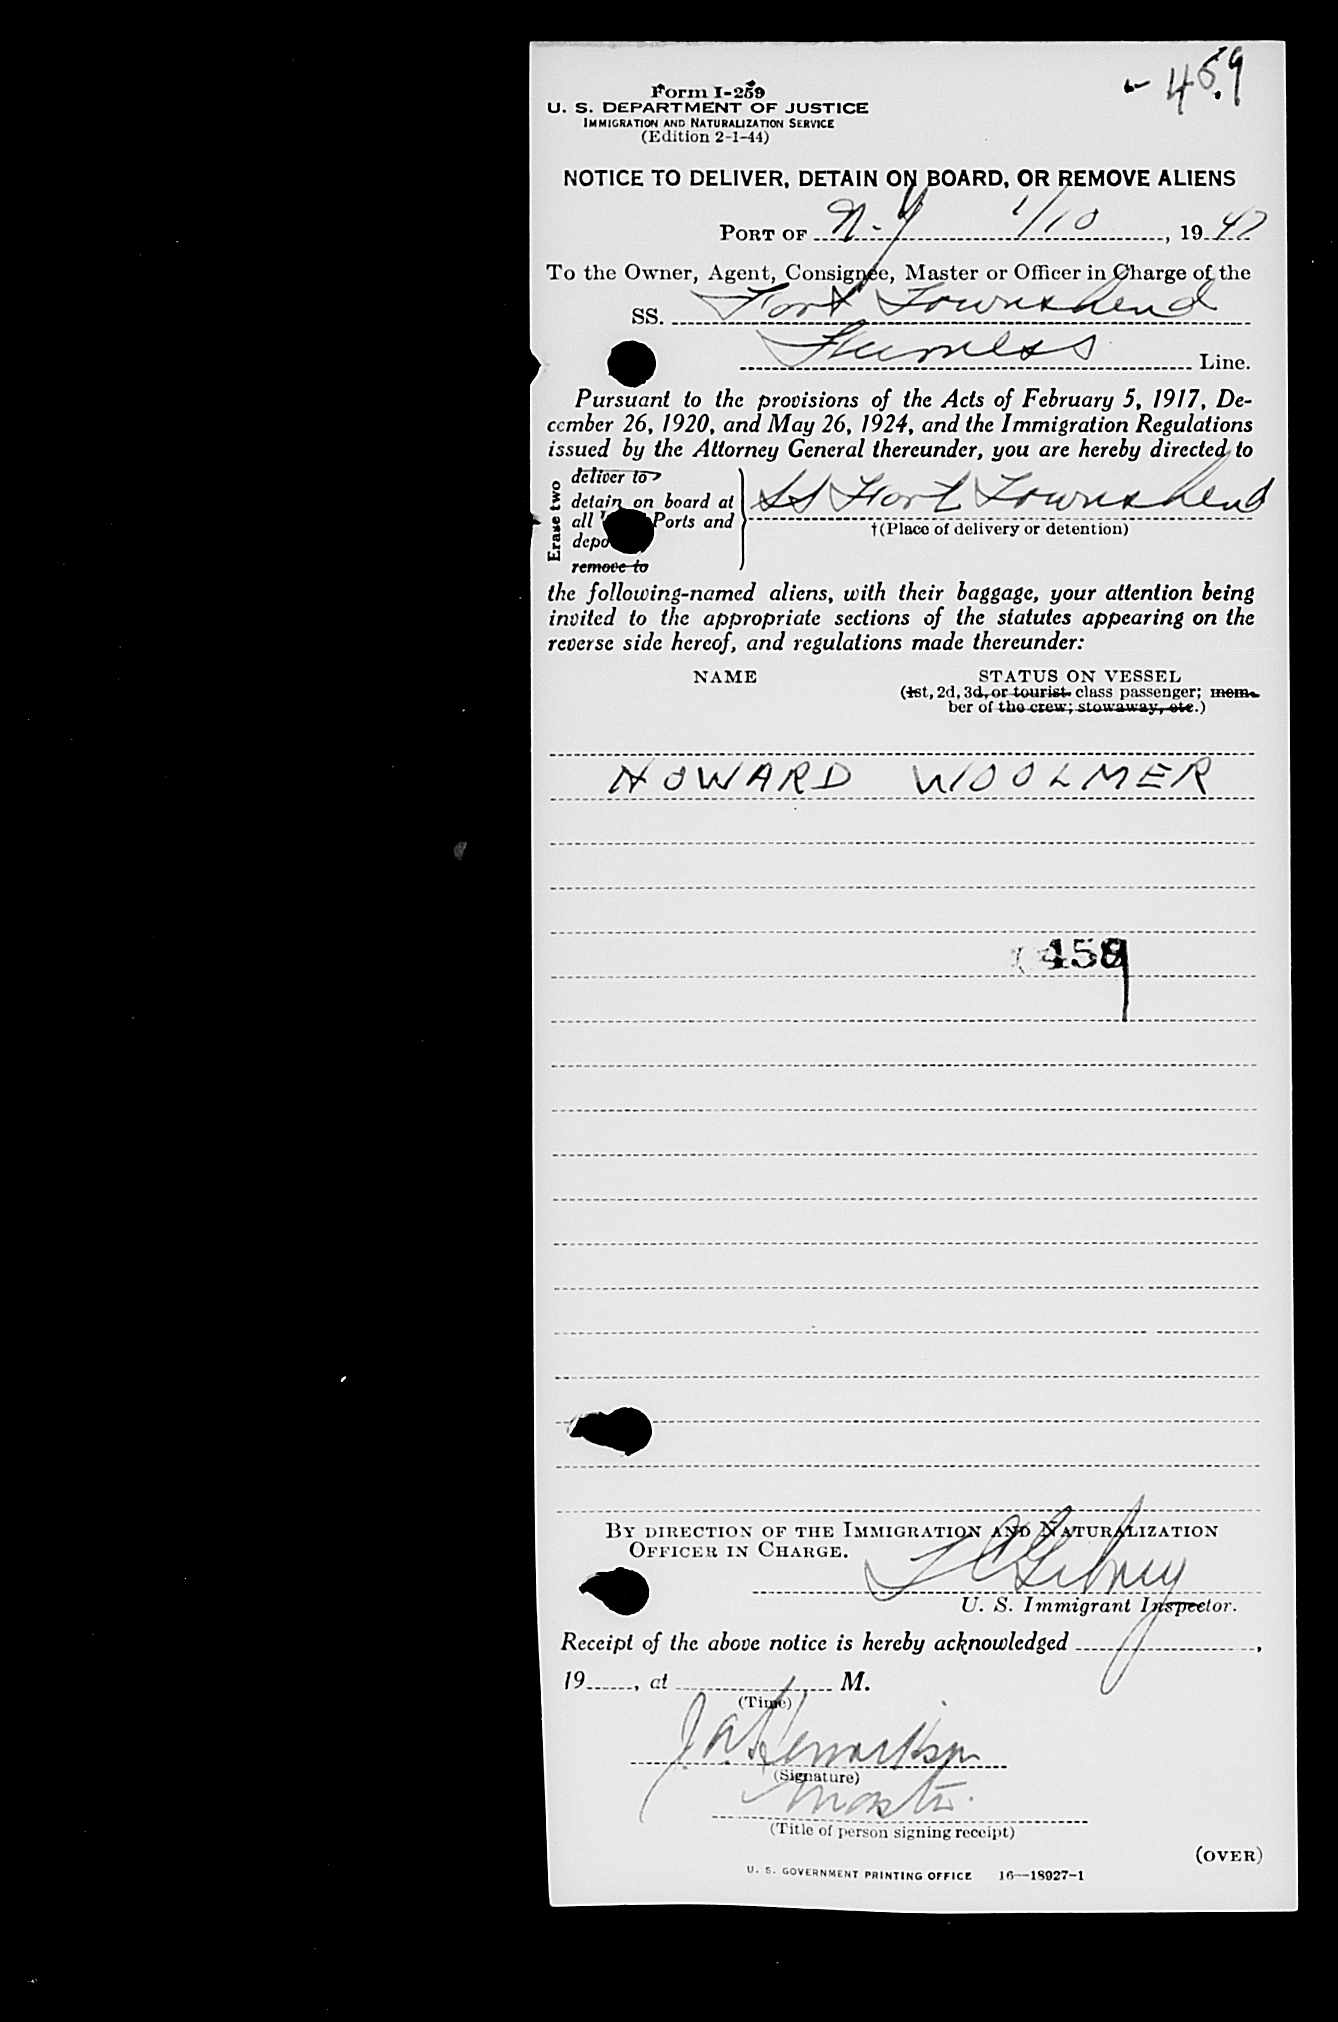 - 459
Form I-259
U. S. DEPARTMENT OF JUSTICE
IMMIGRATION AND NATURALIZATION SERVICE
(Edition 2-1-44)
NOTICE TO DELIVER, DETAIN ON BOARD, OR REMOVE ALIENS
PORT OF N.Y 1/10, 1947
To the Owner, Agent, Consignee, Master or Officer in Charge of the
SS. Fort Townshend
Furness Line.
Pursuant to the provisions of the Acts of February 5, 1917, De-
cember 26, 1920, and May 26, 1924, and the Immigration Regulations
issued by the Attorney General thereunder, you are hereby directed to
Erase two
deliver to
detain on board at
all Ports and
remove to
SS Fort Townshend
†(Place of delivery or detention)
the following-named aliens, with their baggage, your attention being
invited to the appropriate sections of the statutes appearing on the
reverse side hereof, and regulations made thereunder:
NAME STATUS ON VESSEL
(1st, 2d, 3d, or tourist class passenger; mem-
ber of the crew; stowaway, etc.)
HOWARD WOOLMER
459
BY DIRECTION OF THE IMMIGRATION AND NATURALIZATION
OFFICER IN CHARGE.
U. S. Immigrant Inspector.
Receipt of the above notice is hereby acknowledged ,
19 , at M.
(Time)
(Signature)
Master.
(Title of person signing receipt)
(OVER)
U. S. GOVERNMENT PRINTING OFFICE 16—18927-1